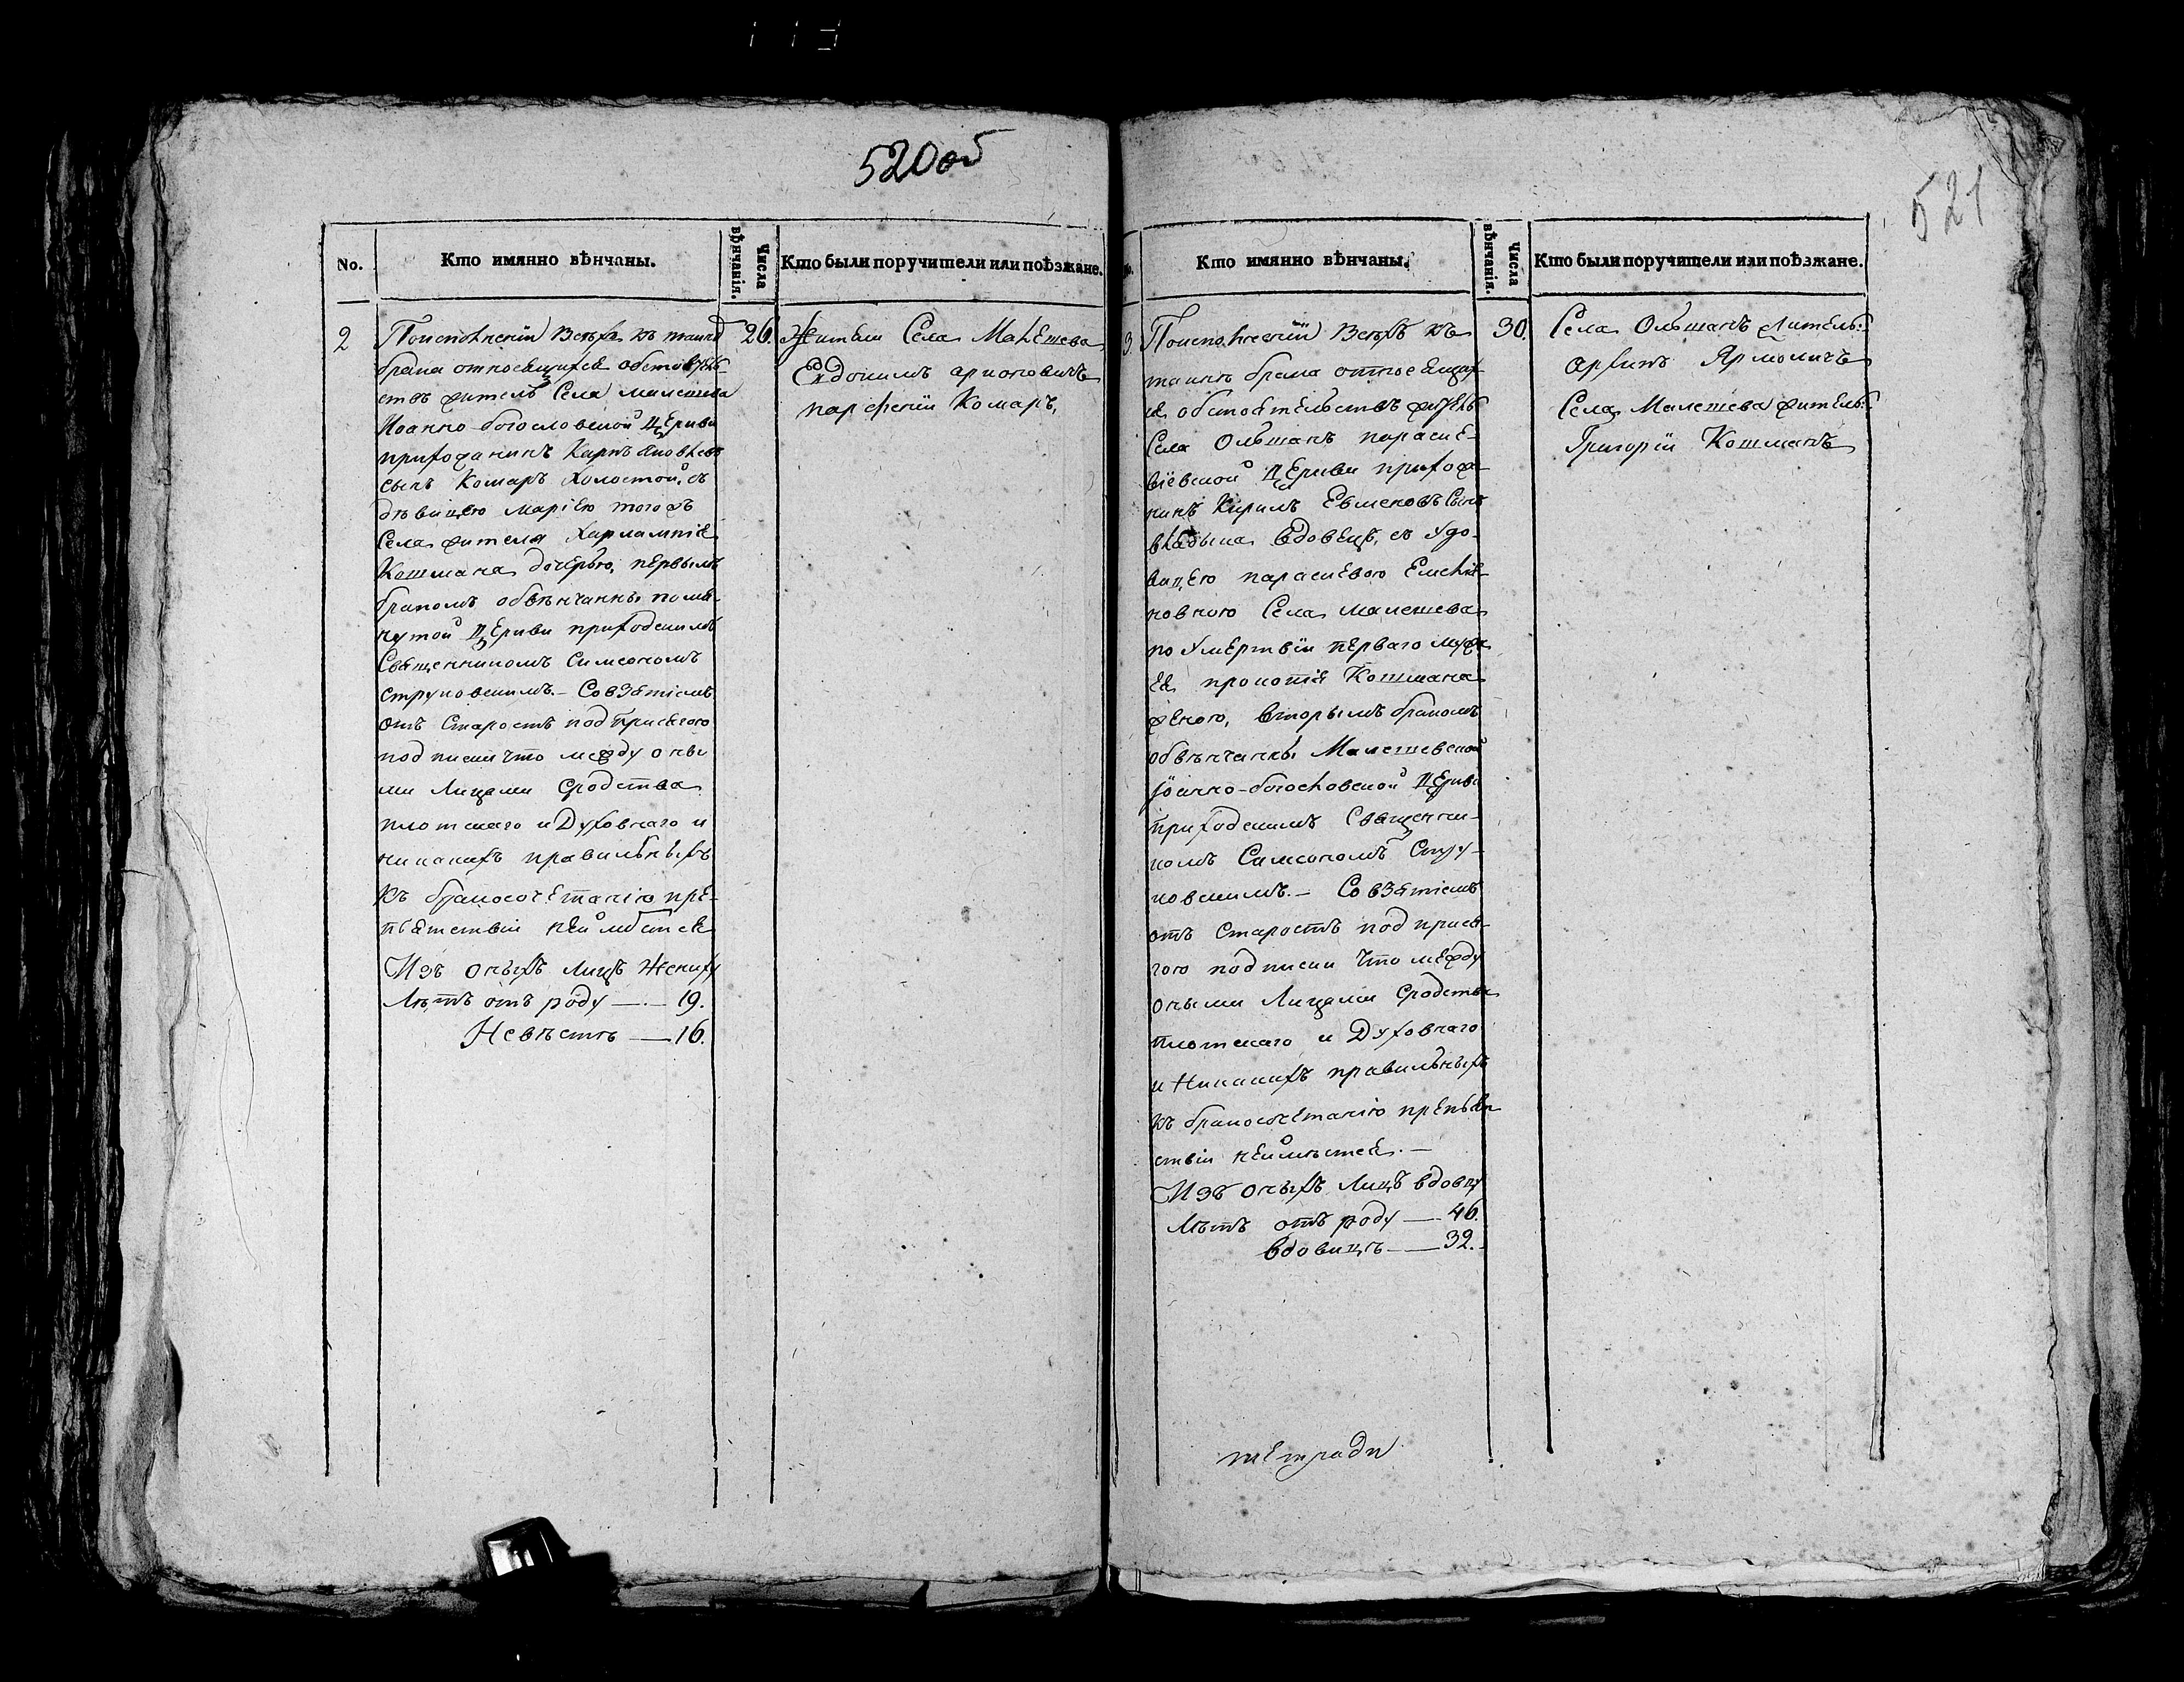 520об
No.
Кто имянно вѣнчаны.
Числа вѣнчанія.
Кто были поручители или поѣзжане.
2
Поисполненіи всѣхъ къ таинѣ
брака относящихся обстоятель-
ствъ житель Села Малешева
Иоанно-богословской Церкви
прихожанинъ Карпъ Яковлевъ
сынъ Комаръ холостой, съ
дѣвицею Маріею тогожъ
Села жителя Харлампія
Кошмана дочерью, первымъ
бракомъ обвѣнчанны помя-
нутой Церкви приходскимъ
Священникомъ Симеономъ
Струковскимъ. – Совзятіемъ
отъ Старостъ подприсягою
подписки что между оны
ми Лицами Сродства
плотскаго и Духовнаго и
никакихъ правильныхъ
Къ бракосочетанію пре-
пятствій неимѣется
Изъ оныхъ лицъ Жениху
Лѣтъ отъ роду — 19.
Невѣстѣ — 16.
26.
Жители Села Малешева
Евдокимъ
парфеній Комаръ,
521
Кто имянно вѣнчаны.
Числа вѣнчанія.
Кто были поручители или поѣзжане.
3.
Поисполненіи Всѣхъ къ
таинѣ брака относящих-
ся обстоятельствъ житель
Села Ольшанъ параске-
віевской Церкви прихожа-
нинъ Кирилъ Евменовъ Сынъ
Вдовецъ, съ удо-
вицею параскевою
новною Села Малешева
по умертвіи перваго мужа
ея прокопія Кошмана
женою, вторымъ бракомъ
обвѣнчаны Малешевской
Іоанно-богословской Церкви
приходскимъ Священни-
комъ Симеономъ Стру-
ковскимъ. – Совзятіемъ
отъ Старостъ подприся-
гою подписки что между
оными Лицами Сродства
плотскаго и Духовнаго
и Никакихъ правильныхъ
къ бракосочетанію препят
ствій неимѣется. –
Изъ оныхъ Лицъ вдовцу
Лѣтъ отъ роду — 46.
вдовицѣ — 32.
30.
Села Ольшанъ житель:
Архипъ Ярмоличъ
Села Малешева житель:
Григорій Кошманъ
тетради